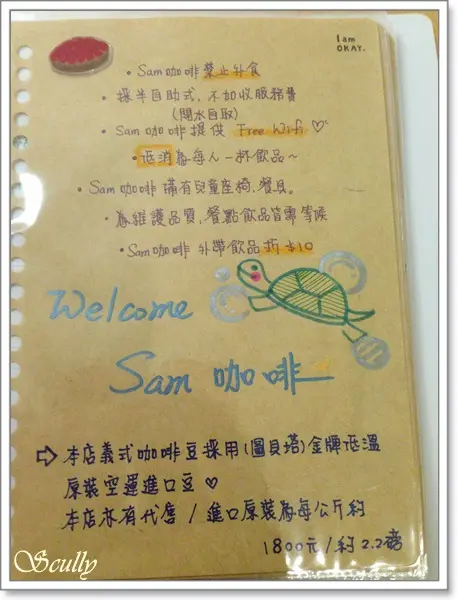 I am
OKAY.
• Sam 咖啡 禁止外食
• 採半自助式,不加收服務費
(開水自取)
• Sam 咖啡 提供 Free Wifi ♡
• 低消為每人一杯飲品~
• Sam 咖啡 備有兒童座椅,餐具。
• 為維護品質,餐點飲品皆需等候
• Sam咖啡 外帶飲品 折 $10
Welcome
Sam 咖啡
⇨ 本店義式咖啡豆採用(圖貝塔)金牌低溫
原裝空運進口豆 ♡
本店亦有代售 / 進口原裝為每公斤約
1800元/約2.2磅
Scully